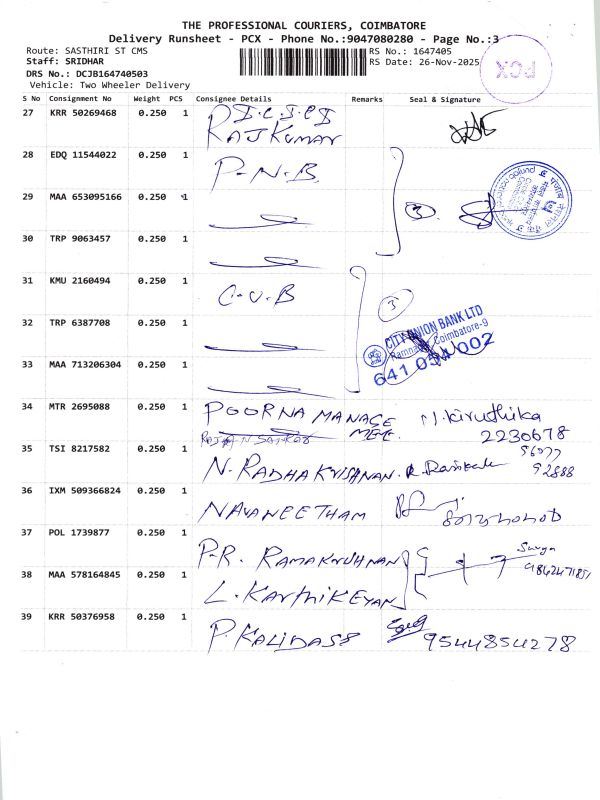 THE PROFESSIONAL COURIERS, COIMBATORE
Delivery Runsheet - PCX - Phone No.:9047080280 - Page No.:3
Route: SASTHIRI ST CMS
RS No.: 1647405
Staff: SRIDHAR
RS Date: 26-Nov-2025
DRS No.: DCJB164740503
Vehicle: Two Wheeler Delivery
PCX
S No Consignment No Weight PCS Consignee Details Remarks Seal & Signature
27 KRR 50269468 0.250 1
RAJKUMAR
28 EDQ 11544022 0.250 1 P-N-B.
29 MAA 653095166 0.250 1 3
30 TRP 9063457 0.250 1
31 KMU 2160494 0.250 1 C-U-B
3
32 TRP 6387708 0.250 1
CITY UNION BANK LTD
Coimbatore-9
641 002
33 MAA 713206304 0.250 1
34 MTR 2695088 0.250 1 POORNA MANAGE MENT. M.Kiruthika
2230678
35 TSI 8217582 0.250 1 N. RADHAKRISHNAN.
92888
36 IXM 509366824 0.250 1 NAVANEETHAM
37 POL 1739877 0.250 1 P-R. RAMAKRISHNAN
Surya
9842471851
38 MAA 578164845 0.250 1 L. KARTHIKEYAN
39 KRR 50376958 0.250 1 P. KALIDASS 9544854278